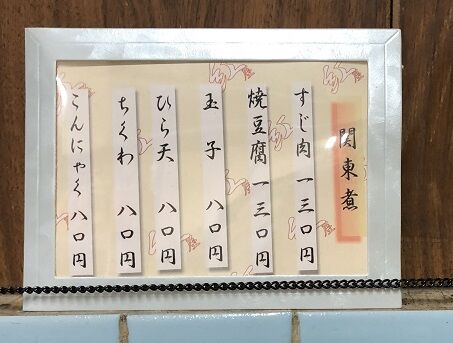 関東煮
すじ肉 一三〇円
焼豆腐 一三〇円
玉子 八〇円
ひら天 八〇円
ちくわ 八〇円
こんにゃく 八〇円